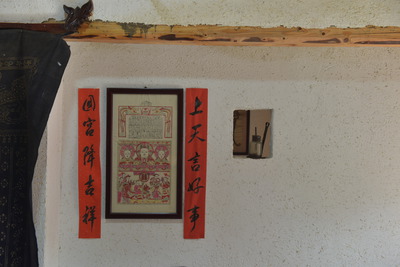 上天言好事
回宮降吉祥